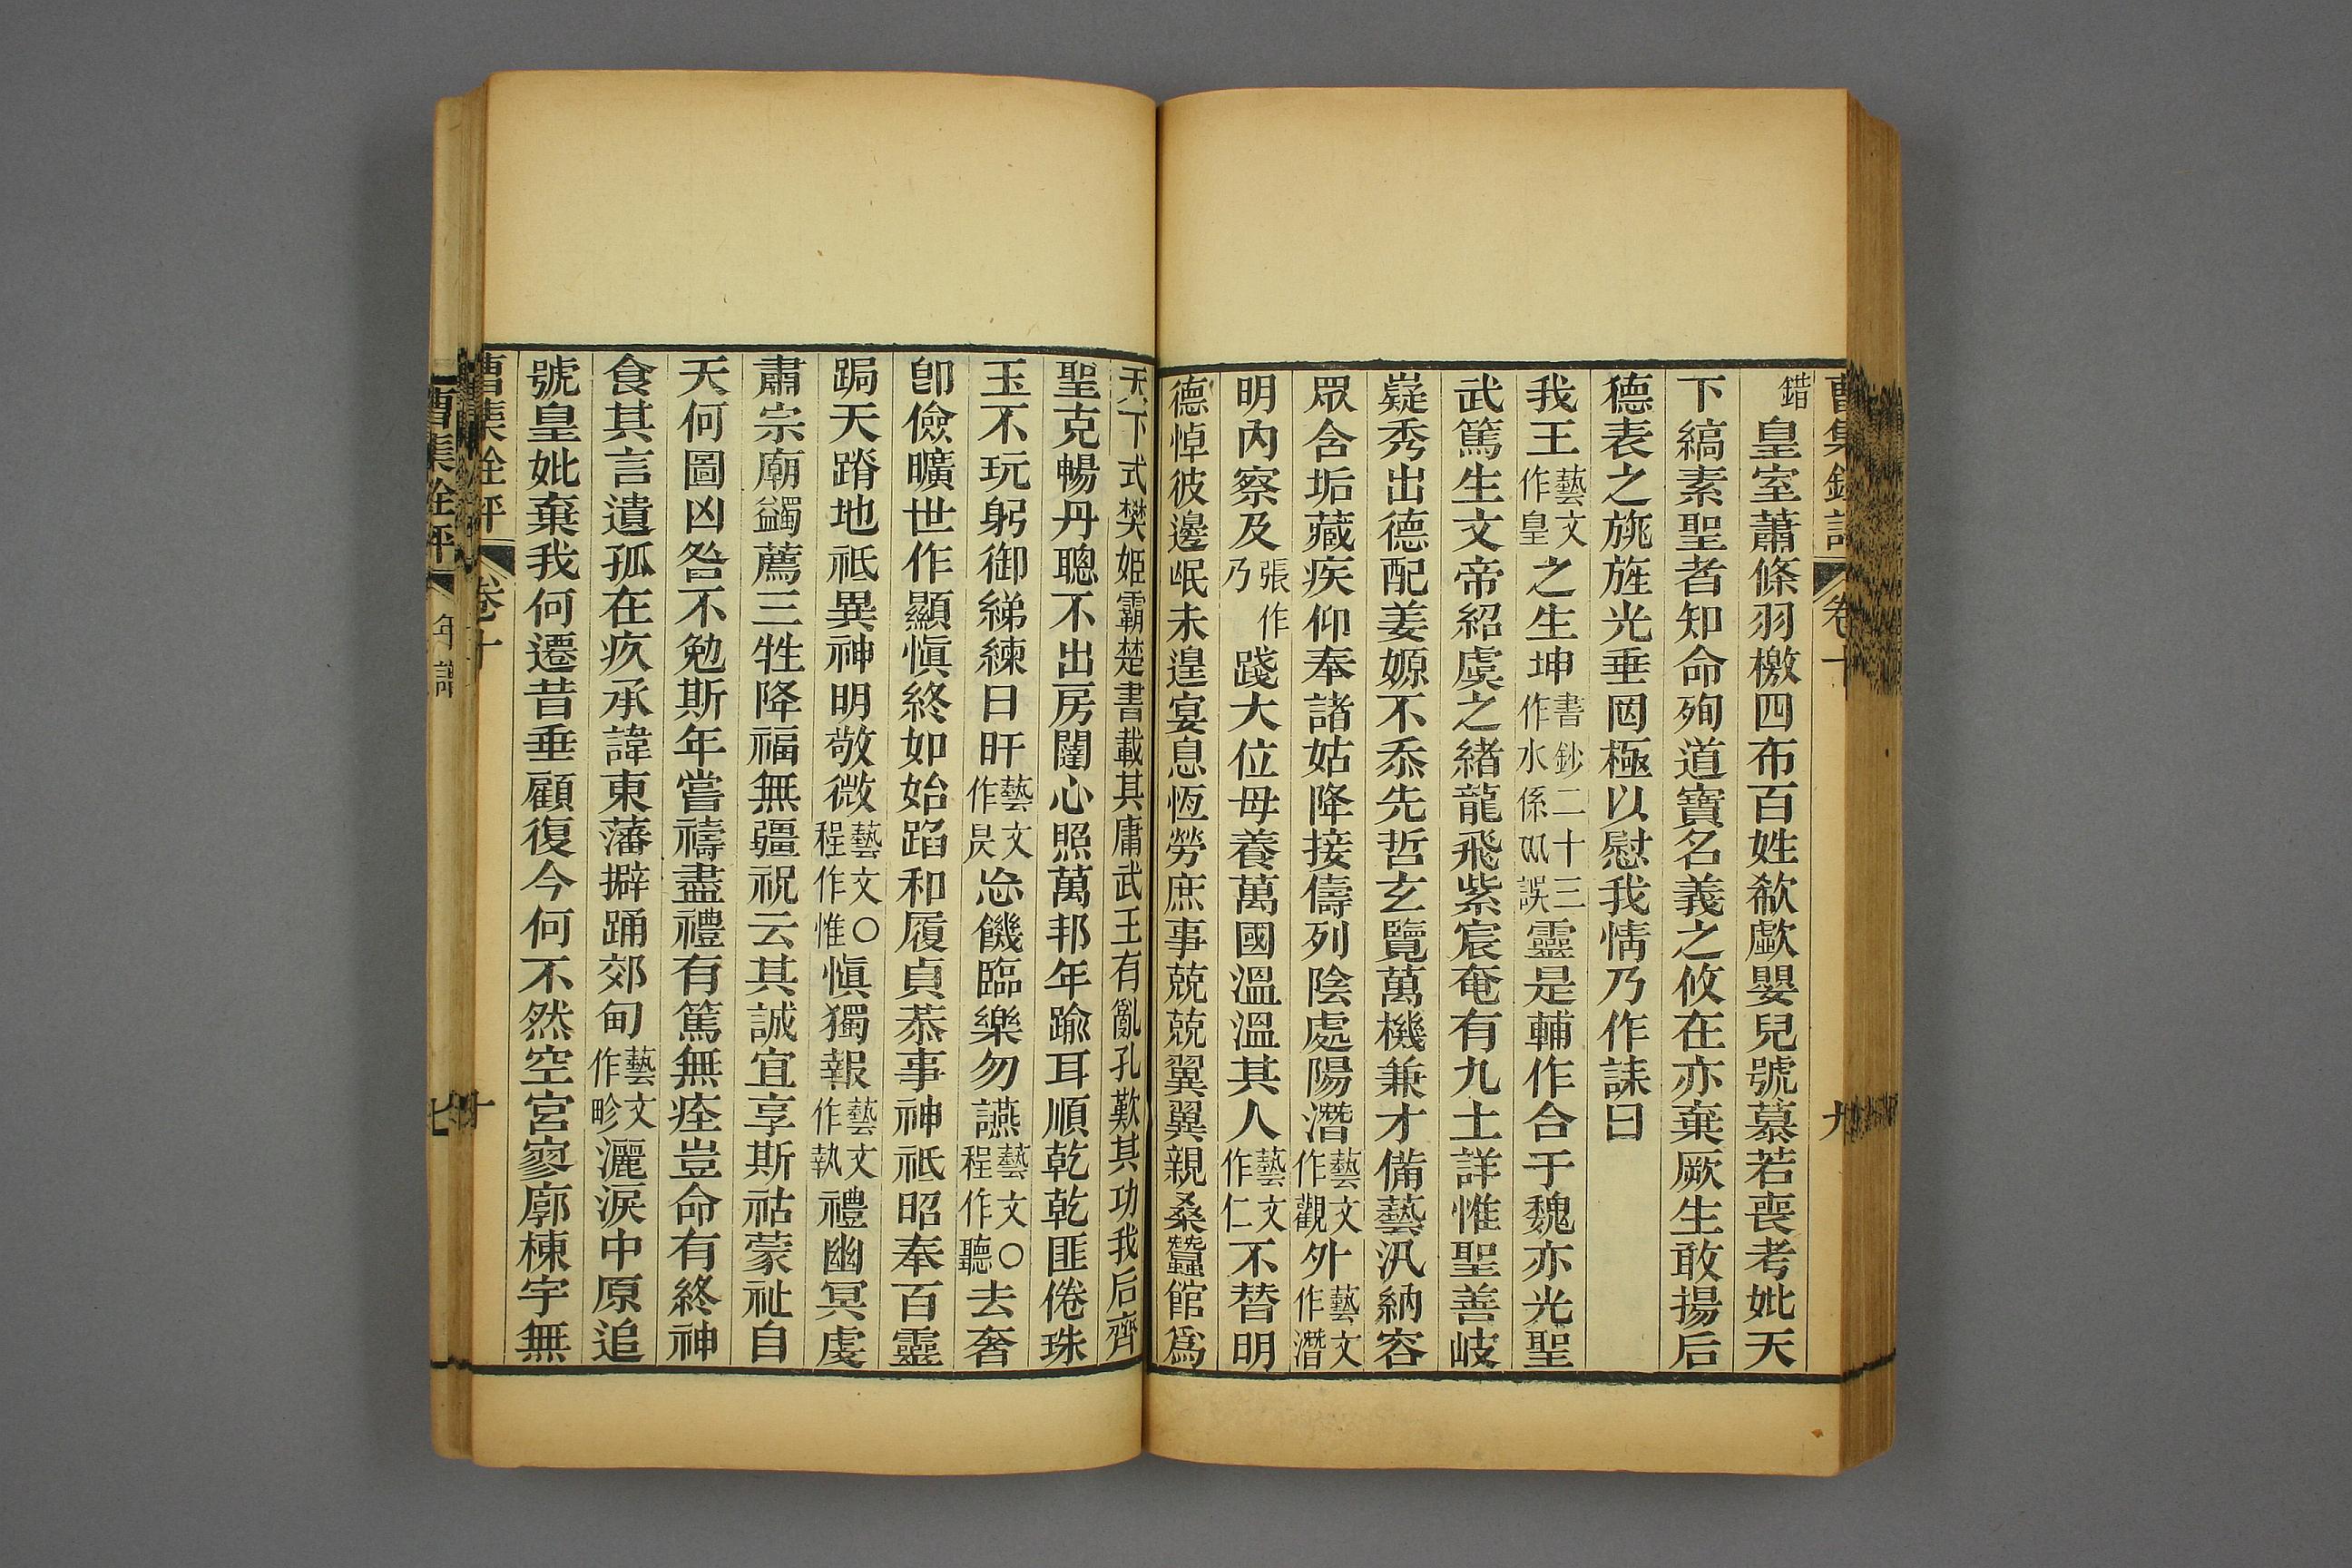 曹集銓評 卷十 九
錯皇室蕭條羽檄四布百姓欷歔嬰兒號慕若喪考妣天
下縞素聖者知命殉道寶名義之攸在亦棄厥生敢揚后
德表之旐旌光垂罔極以慰我情乃作誄曰
我王藝文作皇之生坤書鈔二十三作水係巛誤靈是輔作合于魏亦光聖
武篤生文帝紹虞之緒龍飛紫宸奄有九土詳惟聖善岐
嶷秀出德配姜嫄不忝先哲玄覽萬機兼才備藝汎納容
眾含垢藏疾仰奉諸姑降接儔列陰處陽潛藝文作觀外藝文作潛
明內察及張作乃作踐大位母養萬國溫溫其人藝文作仁不替明
德悼彼邊氓未遑宴息恆勞庶事兢兢翼翼親桑蠶館為
天下式樊姬霸楚書載其庸武王有亂孔歎其功我后齊
聖克暢丹聰不出房闥心照萬邦年踰耳順乾乾匪倦珠
玉不玩躬御綈練日旰藝文作昃忘饑臨樂勿讌藝文○程作聽去奢
卽儉曠世作顯愼終如始蹈和履貞恭事神祇昭奉百靈
跼天蹐地祇異神明敬微藝文○程作惟愼獨報藝文作執禮幽冥虔
肅宗廟蠲薦三牲降福無疆祝云其誠宜享斯祜蒙祉自
天何圖凶咎不勉斯年嘗禱盡禮有篤無痊豈命有終神
食其言遺孤在疚承諱東藩擗踊郊甸藝文作畛灑淚中原追
號皇妣棄我何遷昔垂顧復今何不然空宮寥廓棟宇無
曹集銓評 卷十 十
曹集銓評 年譜 七